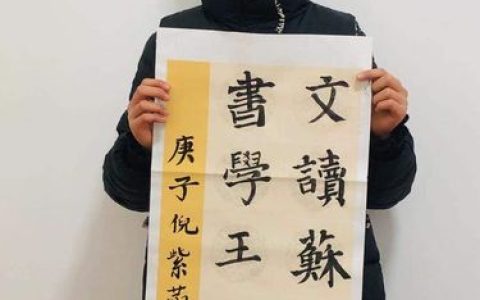 文讀蘇
書學王
庚子倪紫